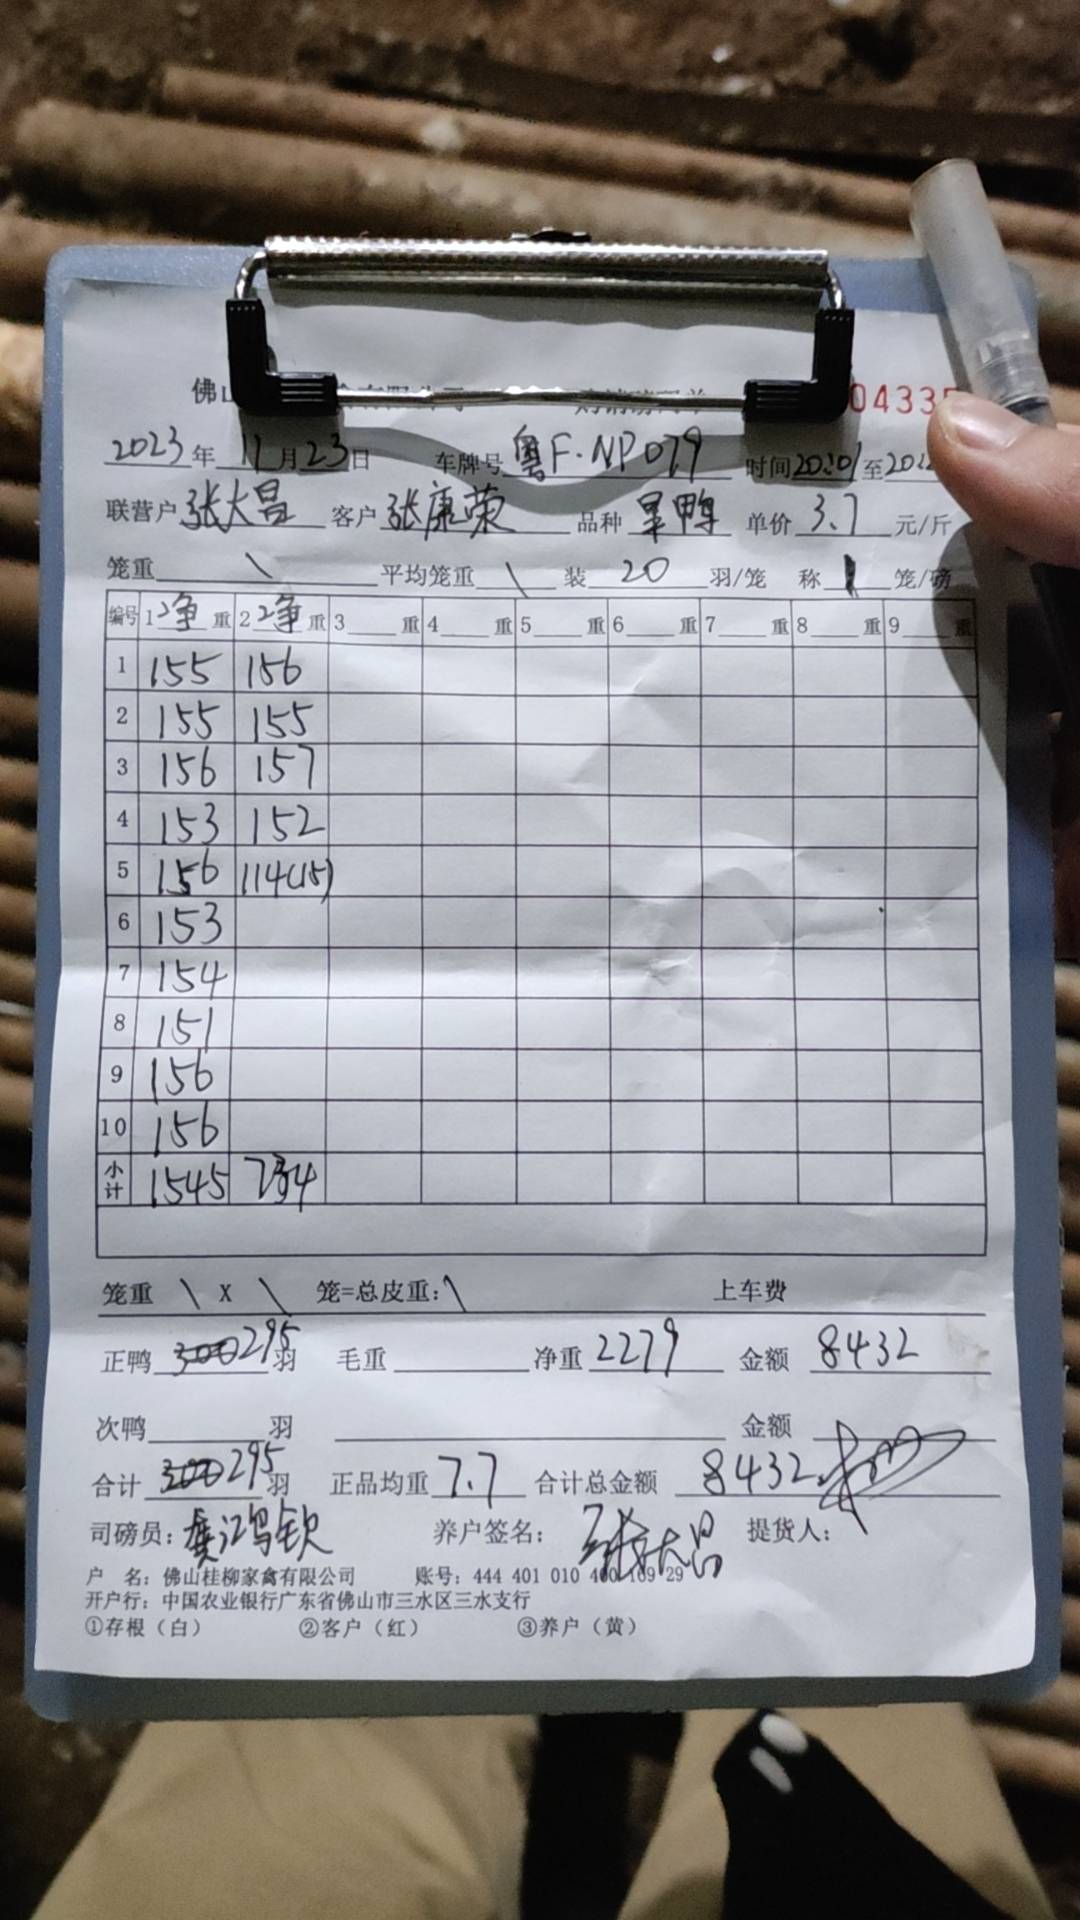 佛山
0433
2023年 11月23日 车牌号 粤F·NP079 时间20:01至20:
联营户 张大昌 客户 张康荣 品种 旱鸭 单价 3.7 元/斤
笼重 \ 平均笼重 \ 装 20 羽/笼 称 1 笼/磅
编号 1净重 2净重 3 重 4 重 5 重 6 重 7 重 8 重 9 重
1 155 156
2 155 155
3 156 157
4 153 152
5 156 114(15)
6 153
7 154
8 151
9 156
10 156
小计 1545 734
笼重 \ X \ 笼=总皮重: \ 上车费
正鸭 300 295 羽 毛重 净重 2279 金额 8432
次鸭 羽 金额
合计 300 295 羽 正品均重 7.7 合计总金额 8432
司磅员: 龚江鸿钦 养户签名: 张大昌 提货人:
户 名: 佛山桂柳家禽有限公司 账号: 444 401 010 400 169 29
开户行: 中国农业银行广东省佛山市三水区三水支行
①存根（白） ②客户（红） ③养户（黄）